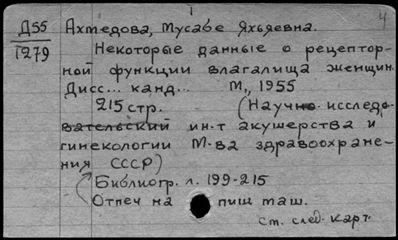 4
Д55 Ахмедова, Мусабе Яхьяевна.
1279 Некоторые данные о рецептор-
ной функции влагалища женщин
Дисс... канд... М., 1955
215 стр. (Научно-исследо
вательский ин-т акушерства и
гинекологии М-ва здравоохране-
ния СССР)
Библиогр. л. 199-215
Отпеч на пиш маш.
См. след. карт.